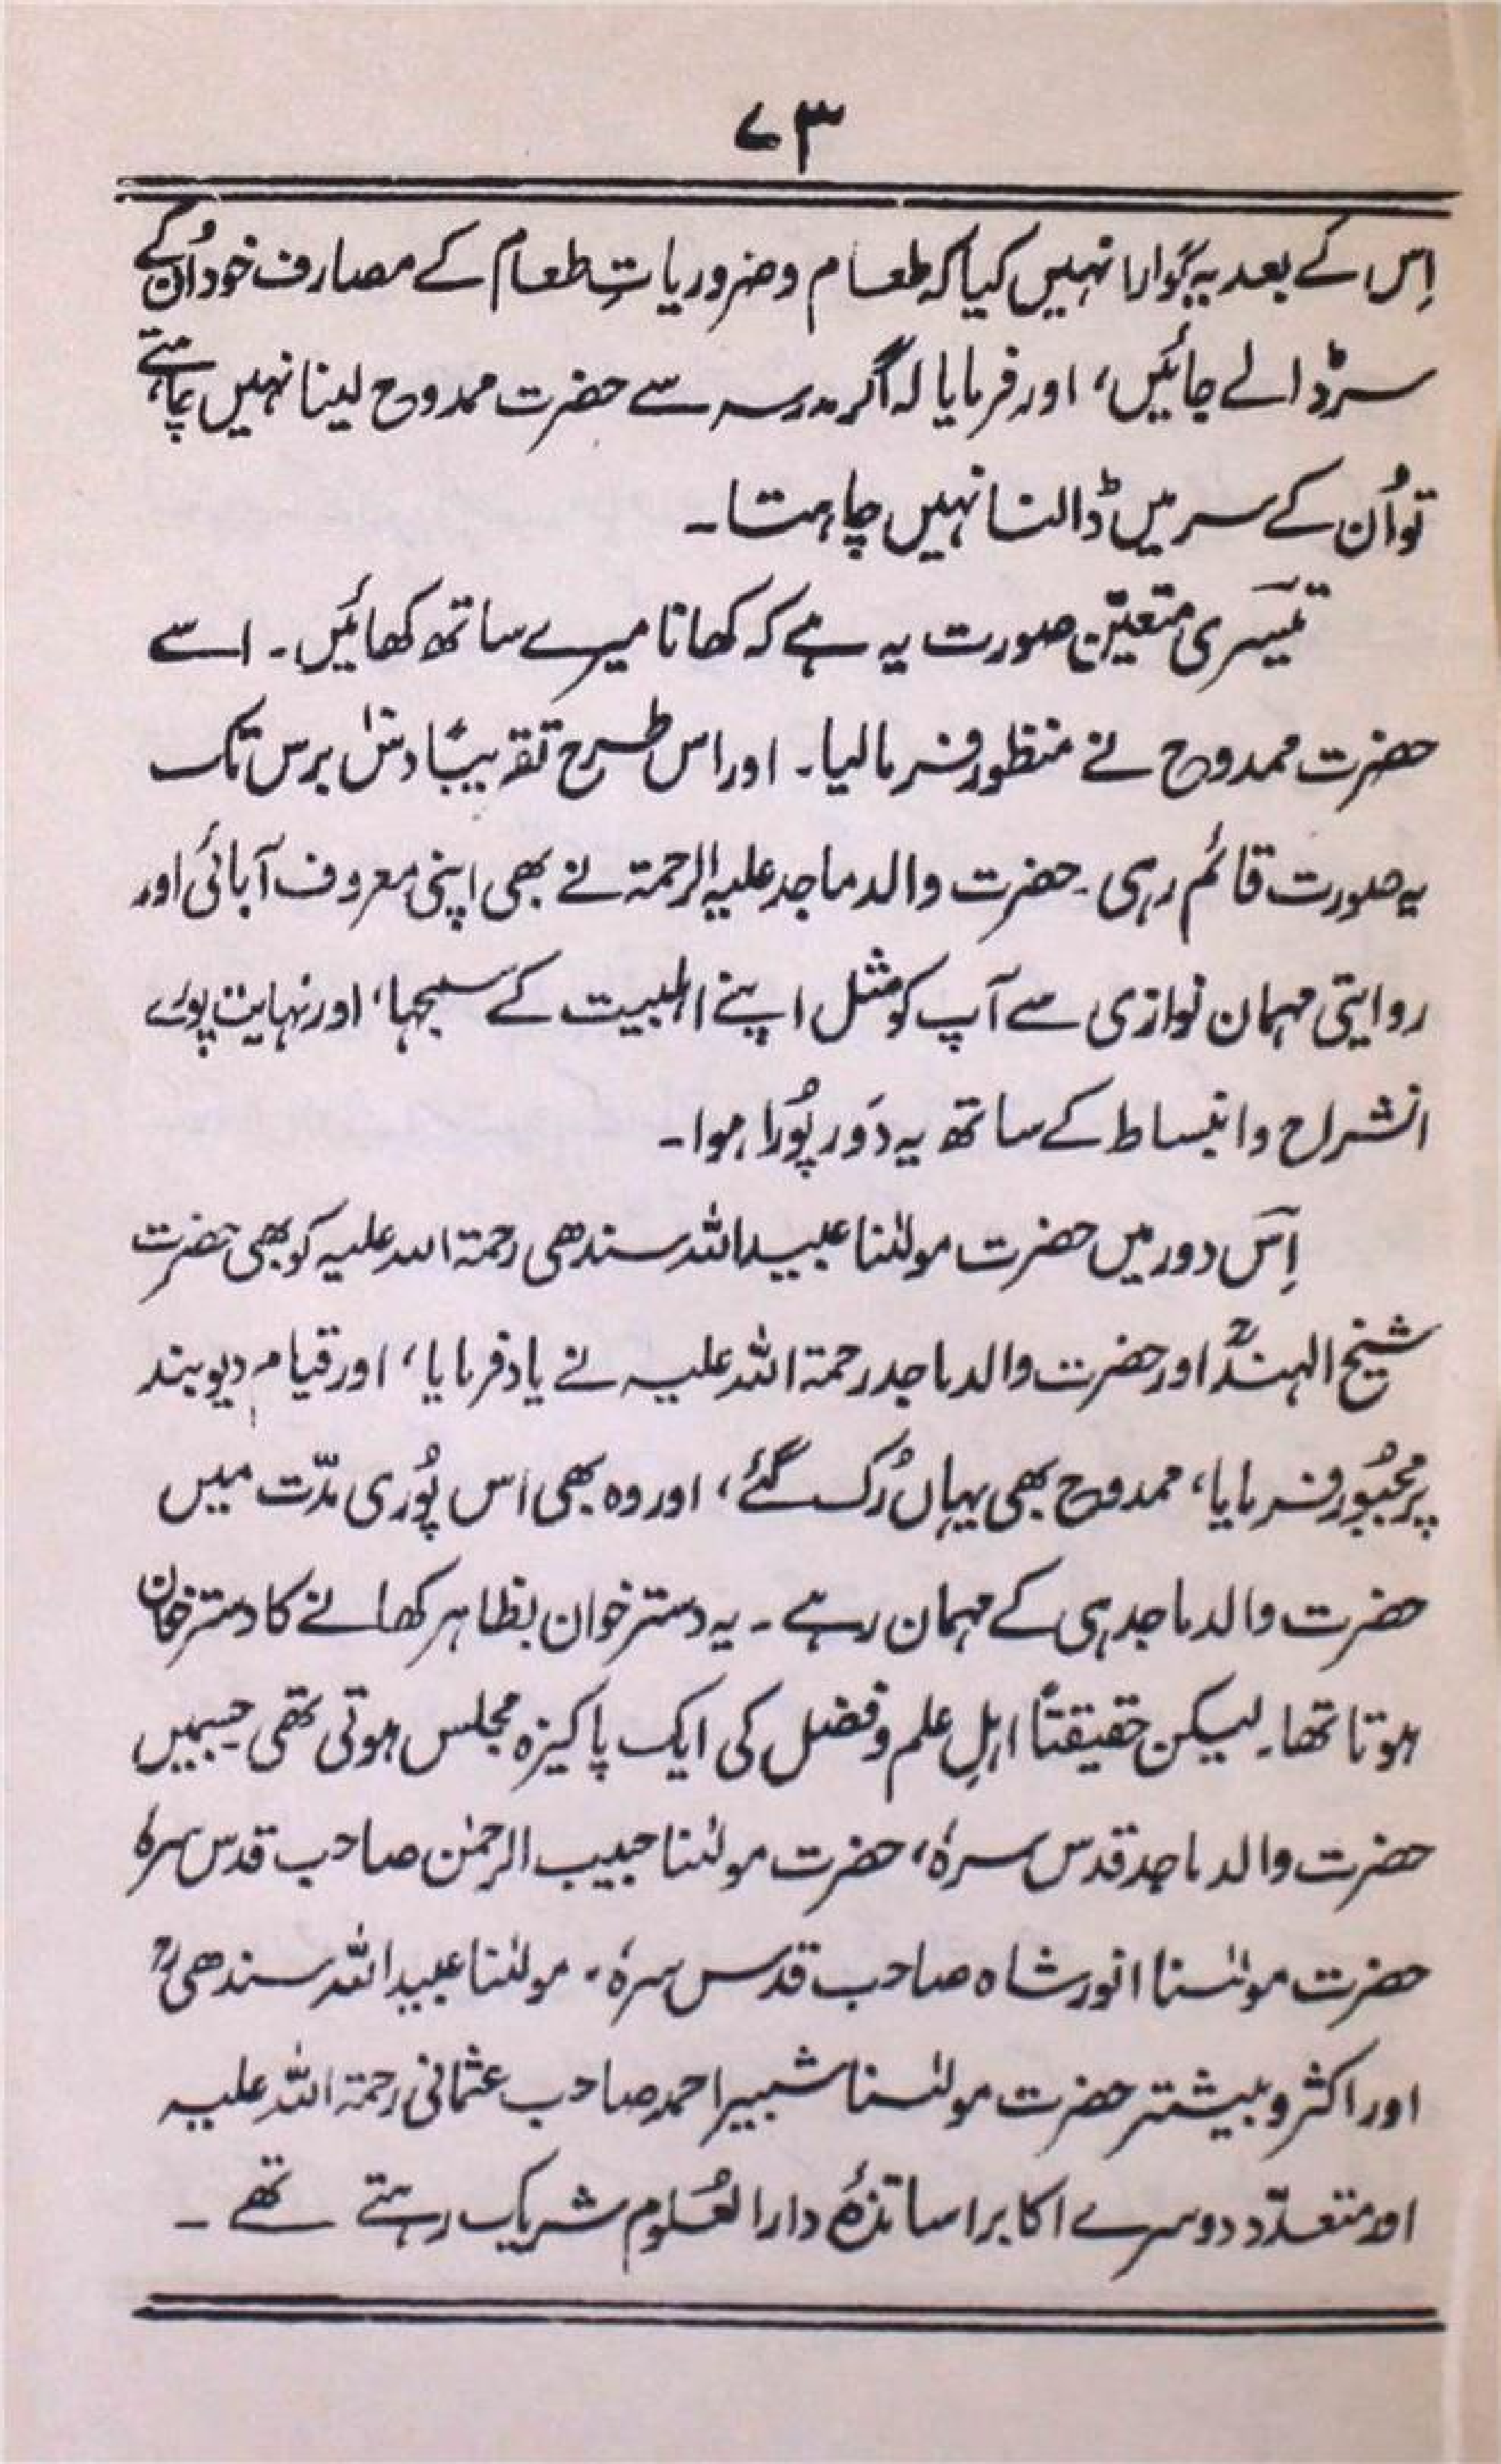 ۷۳
اِس کے بعد یہ گوارا نہیں کیا کہ طعام و ضروریاتِ طعام کے مصارف خود اُن کے
سر ڈالے جائیں، اور فرمایا کہ اگر مدرسہ سے حضرت ممدوح لینا نہیں چاہتے
تو اُن کے سر میں ڈالنا نہیں چاہتا۔
تیسری متعیّن صورت یہ ہے کہ کھانا میرے ساتھ کھائیں۔ اسے
حضرت ممدوح نے منظور فرمالیا۔ اور اس طرح تقریبًا دس برس تک
یہ صورت قائم رہی۔ حضرت والد ماجد علیہ الرحمۃ نے بھی اپنی معروف آبائی اور
روایتی مہمان نوازی سے آپ کو مثل اپنے اہلبیت کے سمجھا، اور نہایت پورے
انشراح و انبساط کے ساتھ یہ دَور پُورا ہوا۔
اِس دور میں حضرت مولٰنا عبیداللہ سندھی رحمۃ اللہ علیہ کو بھی حضرت
شیخ الہندؒ اور حضرت والد ماجد رحمۃ اللہ علیہ نے یاد فرمایا، اور قیام دیوبند
پر مجبُور فرمایا، ممدوح بھی یہاں رُک گئے، اور وہ بھی اس پُوری مدّت میں
حضرت والد ماجد ہی کے مہمان رہے۔ یہ دسترخوان بظاہر کھانے کا دسترخوان
ہوتا تھا۔ لیکن حقیقتًا اہلِ علم و فضل کی ایک پاکیزہ مجلس ہوتی تھی جسمیں
حضرت والد ماجد قدس سرہٗ، حضرت مولٰنا حبیب الرحمٰن صاحب قدس سرہٗ
حضرت مولٰسنا انور شاہ صاحب قدس سرہٗ، مولٰنا عبیداللہ سندھیؒ
اور اکثر و بیشتر حضرت مولٰسنا شبیر احمد صاحب عثمانی رحمۃ اللہ علیہ
اور متعدّد دوسرے اکابر اساتذۂ دارالعُلوم شریک رہتے تھے۔